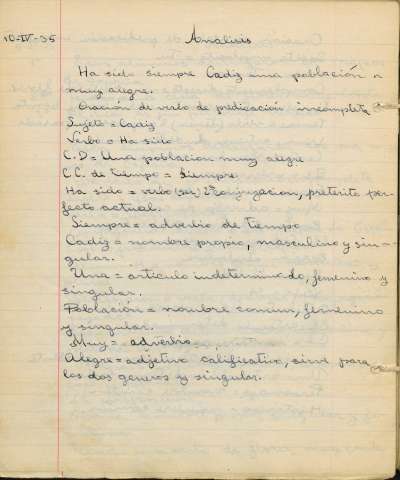 10-IV-35 Análisis
Ha sido siempre Cadiz una población
muy alegre.
Oración de verbo de predicación incompleta
Sujeto = Cadiz
Verbo = Ha sido
C.D = Una poblacion muy alegre
C.C. de tiempo = Siempre
Ha sido = verbo (ser) 2ª conjugacion, preterito per-
fecto actual.
Siempre = adverbio de tiempo
Cadiz = nombre propio, masculino y sin-
gular.
Una = articulo indeterminado, femenino y
singular.
Población = nombre comun, femenino
y singular.
Muy = adverbio
Alegre = adjetivo calificativo, sirve para
los dos generos y singular.